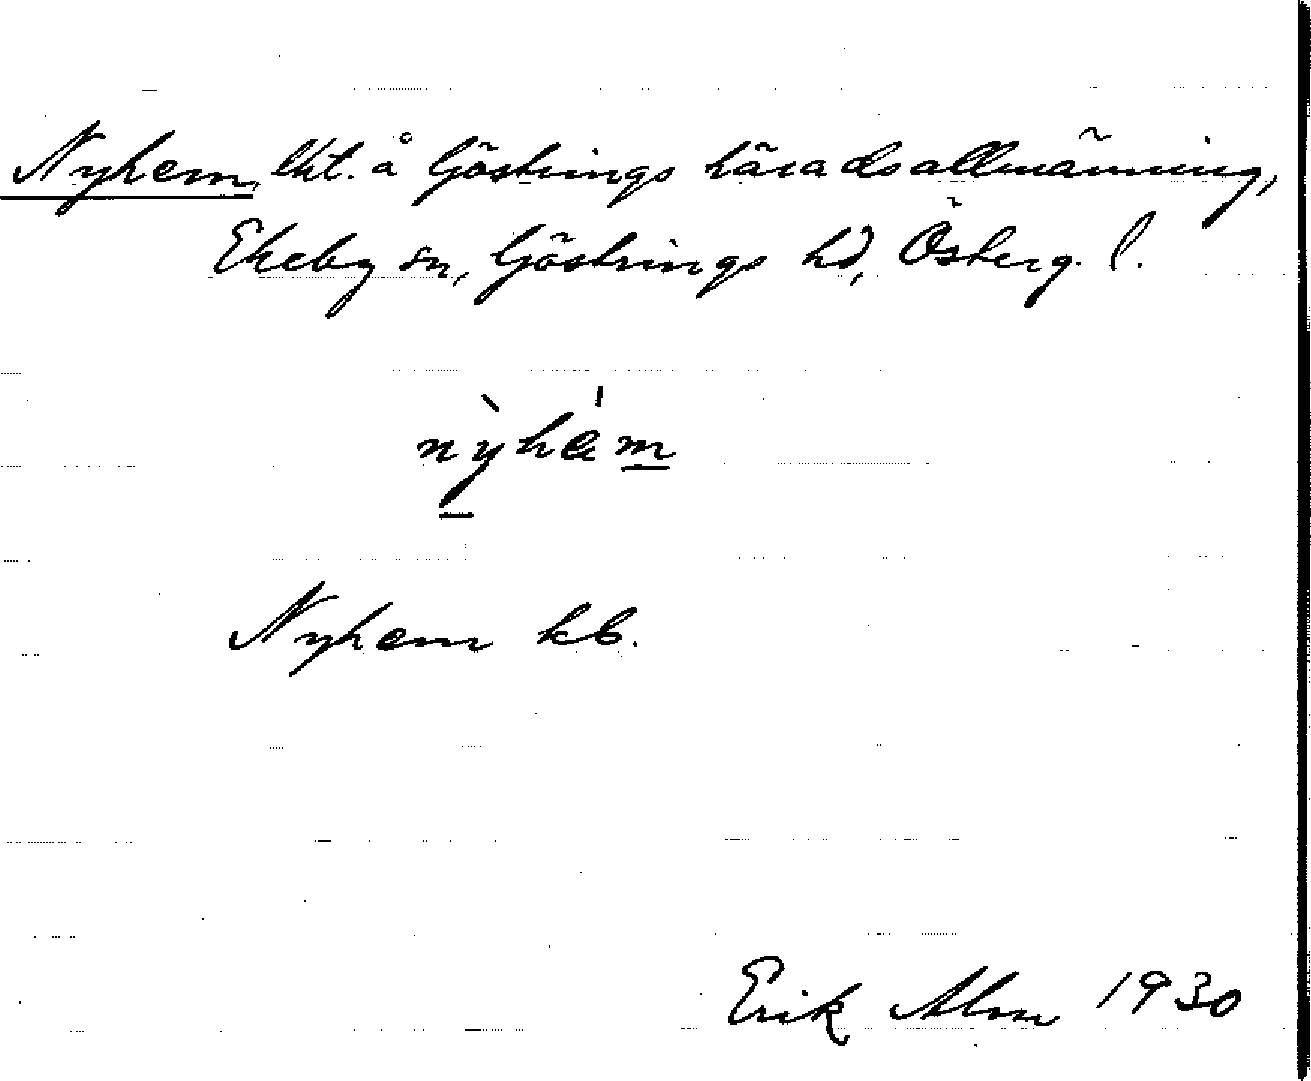 Nyhem, lht. å Göstrings häradsallmänning,
Ekeby sn, Göstrings hd, Österg. l.
nỳhém
Nyhem kb.
Erik Alm 1930